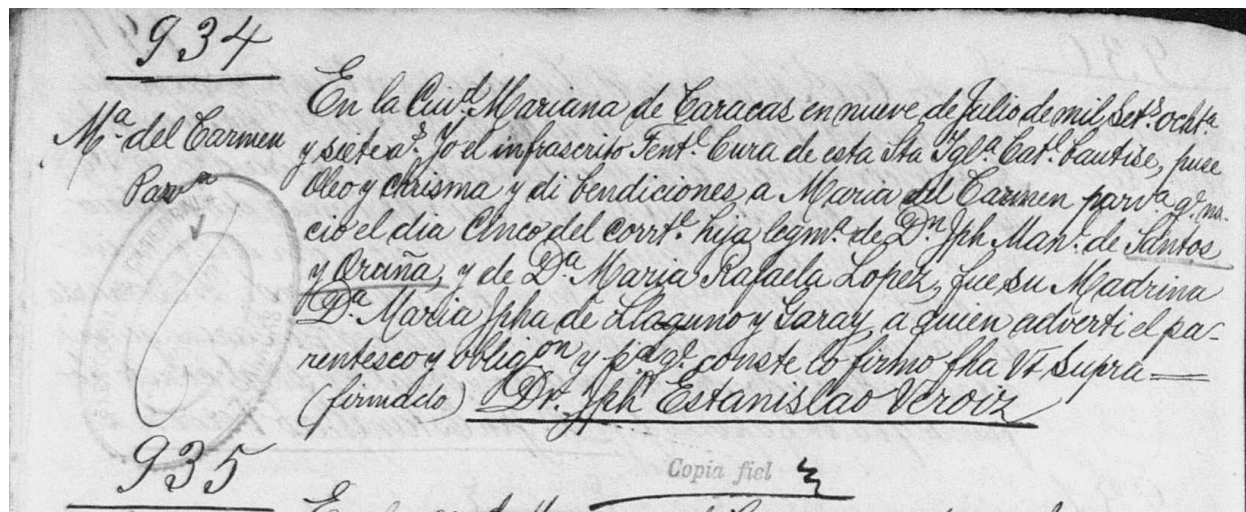 934
Mª del Carmen
Parvª
En la Ciud. Mariana de Caracas en nueve de Julio de mil Sets. ochtª
y siete as. Yo el infrascrito Tent.e Cura de esta Sta Yglª Cat.l bautisé, puse
Oleo y Chrisma y di bendiciones a Maria del Carmen parvª q.e na-
ció el dia Cinco del corrt.e hija legmª de Dn Jph Man.l de Santos
y Oruña, y de Dª Maria Rafaela Lopez, fue su Madrina
Dª Maria Jpha de Llaguno y Garay, a quien adverti el pa-
rentesco y oblig.on y pª q.e conste lo firmo fha Vt Supra=
(firmado) Dr. Jph Estanislao Veroiz
Copia fiel
935